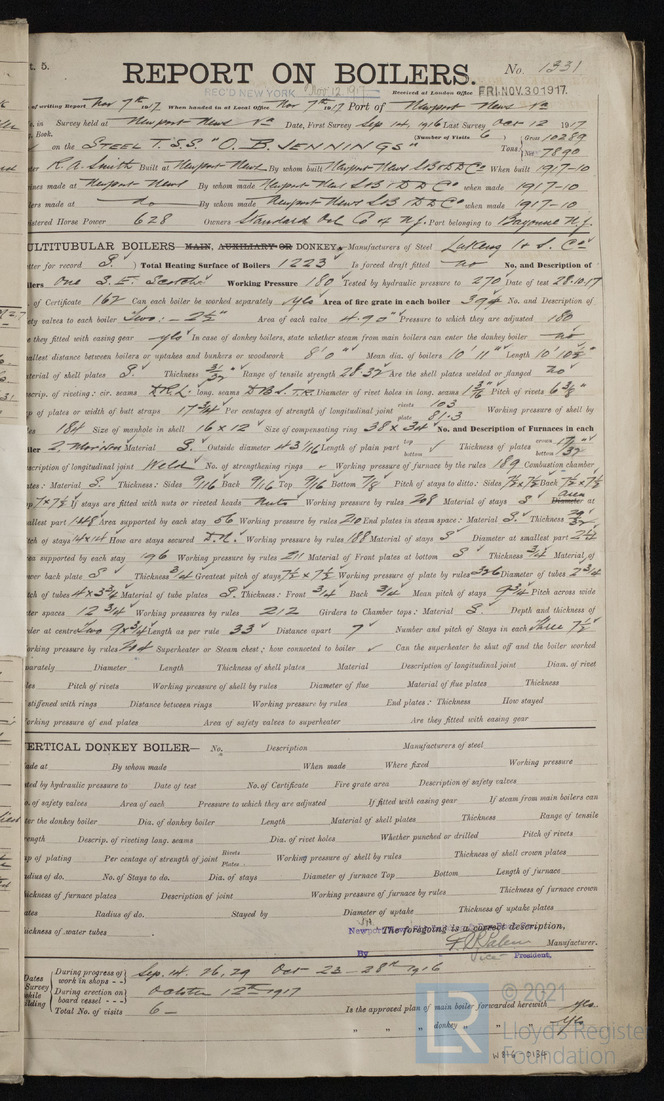 t. 5.
REPORT ON BOILERS.
No. 1331
REC'D NEW YORK Nov 12 1917
Received at London Office FRI. NOV. 30 1917.
of writing Report Nov 7th 1917 When handed in at Local Office Nov 7th 1917 Port of Newport News Va
in Survey held at Newport News Va Date, First Survey Sep 14, 1916 Last Survey Oct 12 1917
Book. (Number of Visits 6)
on the STEEL T.S.S. "O. B. JENNINGS" Tons Gross 10289 Net 7890
ter R. A. Smith Built at Newport News By whom built Newport News S.B. & D.D. Co When built 1917-10
ines made at Newport News By whom made Newport News S.B. & D.D. Co when made 1917-10
lers made at do By whom made Newport News S.B. & D.D. Co when made 1917-10
istered Horse Power 628 Owners Standard Oil Co of N.J. Port belonging to Bayonne N.J.
ULTITUBULAR BOILERS MAIN, AUXILIARY OR DONKEY.—Manufacturers of Steel Lukens I & S. Co
tter for record S Total Heating Surface of Boilers 1223 Is forced draft fitted no No. and Description of
ilers One S.E. Scotch Working Pressure 180 Tested by hydraulic pressure to 270 Date of test 28.10.17
. of Certificate 162 Can each boiler be worked separately yes Area of fire grate in each boiler 39 4 No. and Description of
ety valves to each boiler Two: - 2½" Area of each valve 4.90" Pressure to which they are adjusted 180
e they fitted with easing gear yes In case of donkey boilers, state whether steam from main boilers can enter the donkey boiler no
allest distance between boilers or uptakes and bunkers or woodwork 8' 0" Mean dia. of boilers 10' 11" Length 10' 10½"
aterial of shell plates S. Thickness 31/32" Range of tensile strength 28-32 Are the shell plates welded or flanged no
scrip. of riveting: cir. seams D.R.L. long. seams D.B.S. T.R. Diameter of rivet holes in long. seams 1 3/16" Pitch of rivets 6 3/8"
p of plates or width of butt straps 17 3/4 Per centages of strength of longitudinal joint rivets 103 plate 81.3 Working pressure of shell by
les 184 Size of manhole in shell 16 x 12 Size of compensating ring 38 x 34 No. and Description of Furnaces in each
iler 2, Morison Material S. Outside diameter 43 1/16 Length of plain part top bottom Thickness of plates crown bottom 17/32"
scription of longitudinal joint Weld No. of strengthening rings Working pressure of furnace by the rules 189 Combustion chamber
ates: Material S. Thickness: Sides 9/16 Back 9/16 Top 9/16 Bottom 7/8 Pitch of stays to ditto: Sides 7½ x 7½ Back 7½ x 7½
p 7 x 7½ If stays are fitted with nuts or riveted heads Nuts Working pressure by rules 208 Material of stays S Diameter area at
allest part 1.48 Area supported by each stay 56 Working pressure by rules 210 End plates in steam space: Material S. Thickness 29/32"
tch of stays 14 x 14 How are stays secured D.N. Working pressure by rules 188 Material of stays S Diameter at smallest part 2 3/4
ea supported by each stay 196 Working pressure by rules 211 Material of Front plates at bottom S Thickness 3/4 Material of
wer back plate S Thickness 3/4 Greatest pitch of stays 7½ x 7½ Working pressure of plate by rules 326 Diameter of tubes 2 3/4
tch of tubes 4 x 3 3/4 Material of tube plates S. Thickness: Front 3/4 Back 3/4 Mean pitch of stays 9 3/4 Pitch across wide
ter spaces 12 3/4 Working pressures by rules 212 Girders to Chamber tops: Material S. Depth and thickness of
rder at centre Two 9 x 3/4 Length as per rule 33 Distance apart 7 Number and pitch of Stays in each Three 7½
orking pressure by rules 204 Superheater or Steam chest; how connected to boiler ✓ Can the superheater be shut off and the boiler worked
parately Diameter Length Thickness of shell plates Material Description of longitudinal joint Diam. of rivet
les Pitch of rivets Working pressure of shell by rules Diameter of flue Material of flue plates Thickness
stiffened with rings Distance between rings Working pressure by rules End plates: Thickness How stayed
orking pressure of end plates Area of safety valves to superheater Are they fitted with easing gear
ERTICAL DONKEY BOILER— No. Description Manufacturers of steel
ade at By whom made When made Where fixed Working pressure
sted by hydraulic pressure to Date of test No. of Certificate Fire grate area Description of safety valves
o. of safety valves Area of each Pressure to which they are adjusted If fitted with easing gear If steam from main boilers can
ter the donkey boiler Dia. of donkey boiler Length Material of shell plates Thickness Range of tensile
rength Descrip. of riveting long. seams Dia. of rivet holes Whether punched or drilled Pitch of rivets
p of plating Per centage of strength of joint Rivets Plates Working pressure of shell by rules Thickness of shell crown plates
adius of do. No. of Stays to do. Dia. of stays Diameter of furnace Top Bottom Length of furnace
hickness of furnace plates Description of joint Working pressure of furnace by rules Thickness of furnace crown
ates Radius of do. Stayed by Diameter of uptake Thickness of uptake plates
hickness of water tubes
The foregoing is a correct description,
By Manufacturer.
Vice President,
Dates Survey while ilding
During progress of work in shops - - Sep. 14. 26, 29 Oct 23 - 28th 1916
During erection on board vessel - - - October 12th 1917
Total No. of visits 6 — Is the approved plan of main boiler forwarded herewith yes
" " " donkey " " " yes
© 2021
LR
Lloyd's Register
Foundation
W816-0134